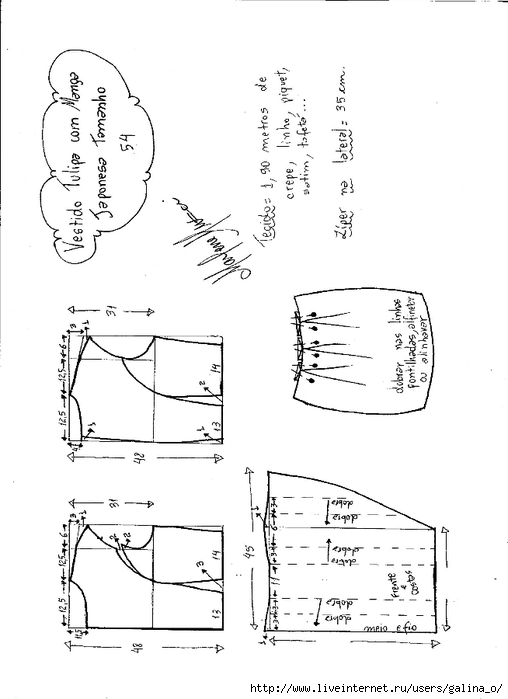 Vestido Tulipa com Manga
Japonesa Tamanho
54
Tecido = 1,90 metros de
crepe, linho, piquet,
satim, tafetá...
Zíper na lateral = 35 cm.
31
3
1
12,5
12,5
6
4
1
42
2
14
1
13
31
3
1
12,5
12,5
6
11,5
2
2
48
3
14
13
dobrar nas linhas
pontilhadas, alfinetar
ou alinhavar
45
1
3
3
6
3
3
11
3
3
1
dobra
dobra
dobra
dobra
dobra
dobra
frente
e
costas
meio
http://www.liveinternet.ru/users/galina_o/